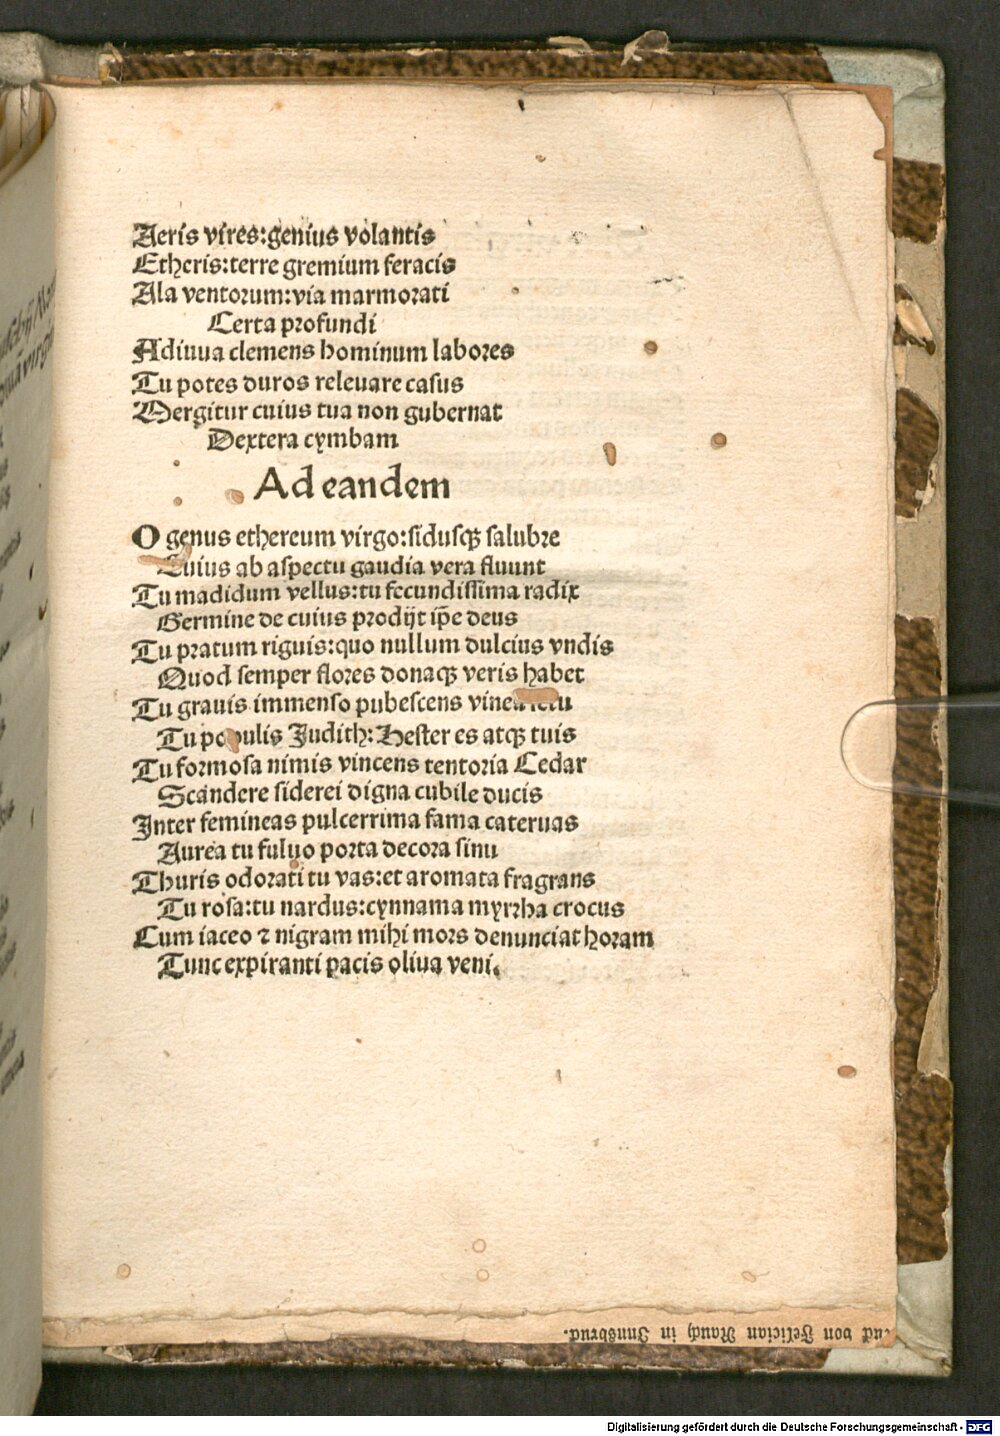 Aeris vires:genius volantis
Etheris:terre gremium feracis
Ala ventorum:via marmorati
Certa profundi
Adiuua clemens hominum labores
Tu potes duros releuare casus
Mergitur cuius tua non gubernat
Dextera cymbam
Ad eandem
O genus ethereum virgo:sidusqȝ salubre
Cuius ab aspectu gaudia vera fluunt
Tu madidum vellus:tu fecundissima radix
Germine de cuius prodijt ip̄e deus
Tu pratum riguis:quo nullum dulcius vndis
Quod semper flores donaqȝ veris habet
Tu grauis immenso pubescens vinea
Tu populis Judith:Hester es atqȝ tuis
Tu formosa nimis vincens tentoria Cedar
Scandere siderei digna cubile ducis
Inter femineas pulcerrima fama cateruas
Aurea tu fuluo porta decora sinu
Thuris odorati tu vas:et aromata fragrans
Tu rosa:tu nardus:cynnama myrrha crocus
Cum iaceo ⁊ nigram mihi mors denunciat horam
Tunc expiranti pacis oliua veni.
von Felician Rauch in Innsbruck.
Digitalisierung gefördert durch die Deutsche Forschungsgemeinschaft - DFG